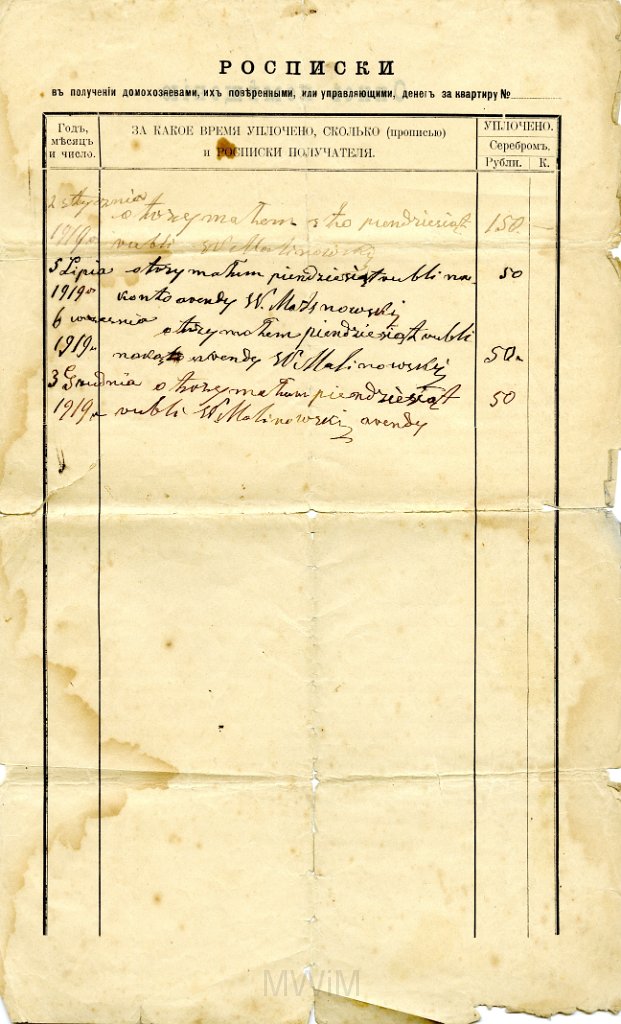 РОСПИСКИ
въ полученіи домохозяевами, ихъ повѣренными, или управляющими, денегъ за квартиру №
Годъ, мѣсяцъ и число.
ЗА КАКОЕ ВРЕМЯ УПЛОЧЕНО, СКОЛЬКО (прописью) и РОСПИСКИ ПОЛУЧАТЕЛЯ.
УПЛОЧЕНО.
Серебромъ.
Рубли. К.
2 stycznia otrzymałem sto piendziesiąt 150 —
1919 rubli W Malinowski
5 Lipia otrzymałum piendziesiąt rubli na 50
1919 konto arendy W. Malinowski
6 otrzymałem piendziesiąt rubli
1919 arendy W Malinowski 50
3 Grudnia otrzymałum piendziesiąt 50
1919 rubli W Malinowski arendy
MWiM